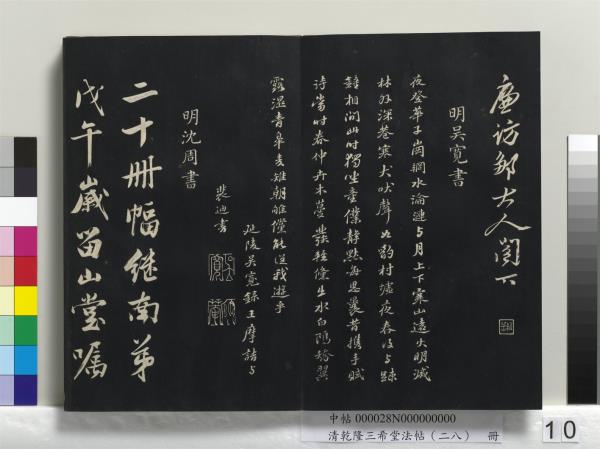 廉訪鄒大人閣下
明吳寬書
夜登華子崗輞水淪漣与月上下寒山遠火明滅
林外深巷寒犬吠聲如豹村墟夜舂復与疎
鐘相間此時獨坐童僕靜默每思曩昔攜手賦
詩當時春仲卉木蔓發輕鯈出水白鷗矯翼
露濕青皋麥雉朝雊儻能從我遊乎
延陵吳寬錄王摩詰与
裴迪書
明沈周書
二十冊幅継南弟
戊午歲留山堂囑
中帖 000028N000000000
清乾隆三希堂法帖(二八) 冊
10